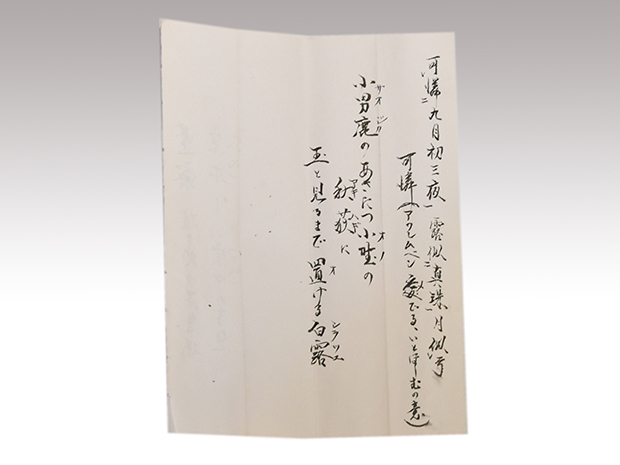 可憐九月初三夜 露似真珠月似弓
可憐(アワレムベシ 愛でる、いとほしむの意)
小男鹿のあさたつ小野の
秋萩に
玉と見るまで置ける白露